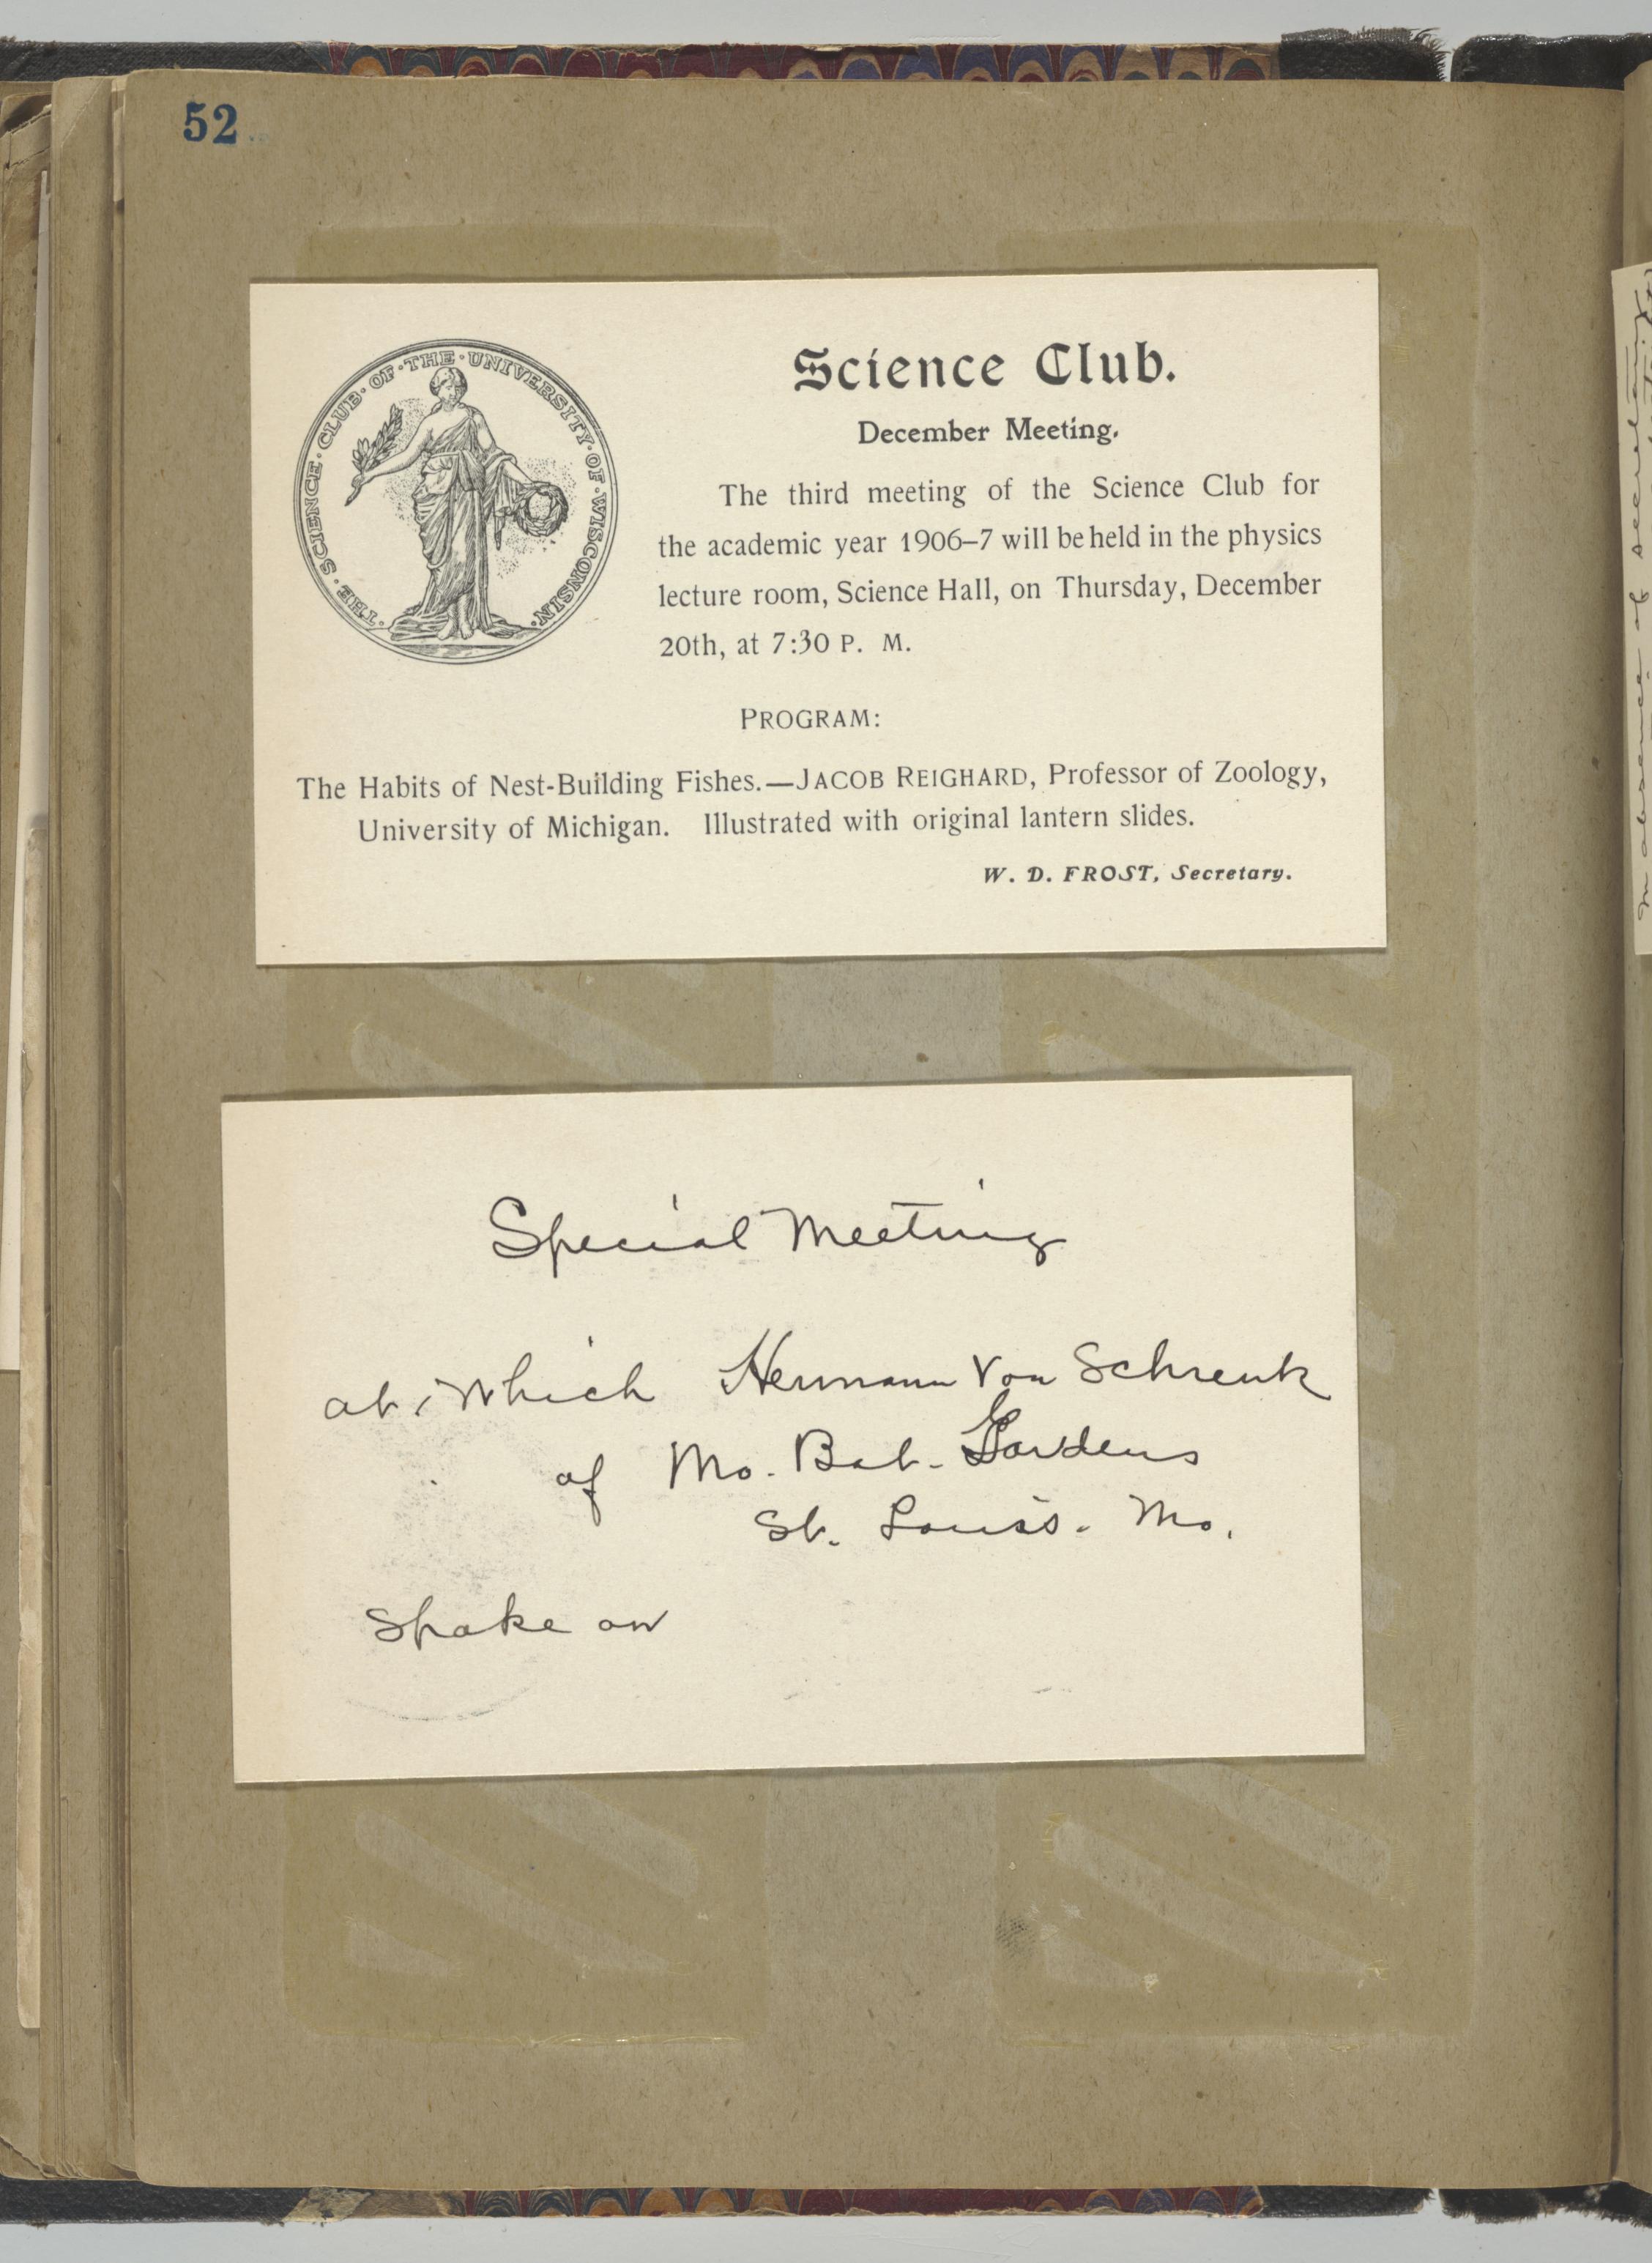 52
THE · SCIENCE · CLUB · OF · THE · UNIVERSITY · OF · WISCONSIN ·
Science Club.
December Meeting.
The third meeting of the Science Club for
the academic year 1906–7 will be held in the physics
lecture room, Science Hall, on Thursday, December
20th, at 7:30 P. M.
PROGRAM:
The Habits of Nest-Building Fishes.—JACOB REIGHARD, Professor of Zoology,
University of Michigan. Illustrated with original lantern slides.
W. D. FROST, Secretary.
Special Meeting
at which Hermann Von Schrenk
of Mo. Bot. Gardens
St. Louis. Mo.
Spoke on
in absence of secretary